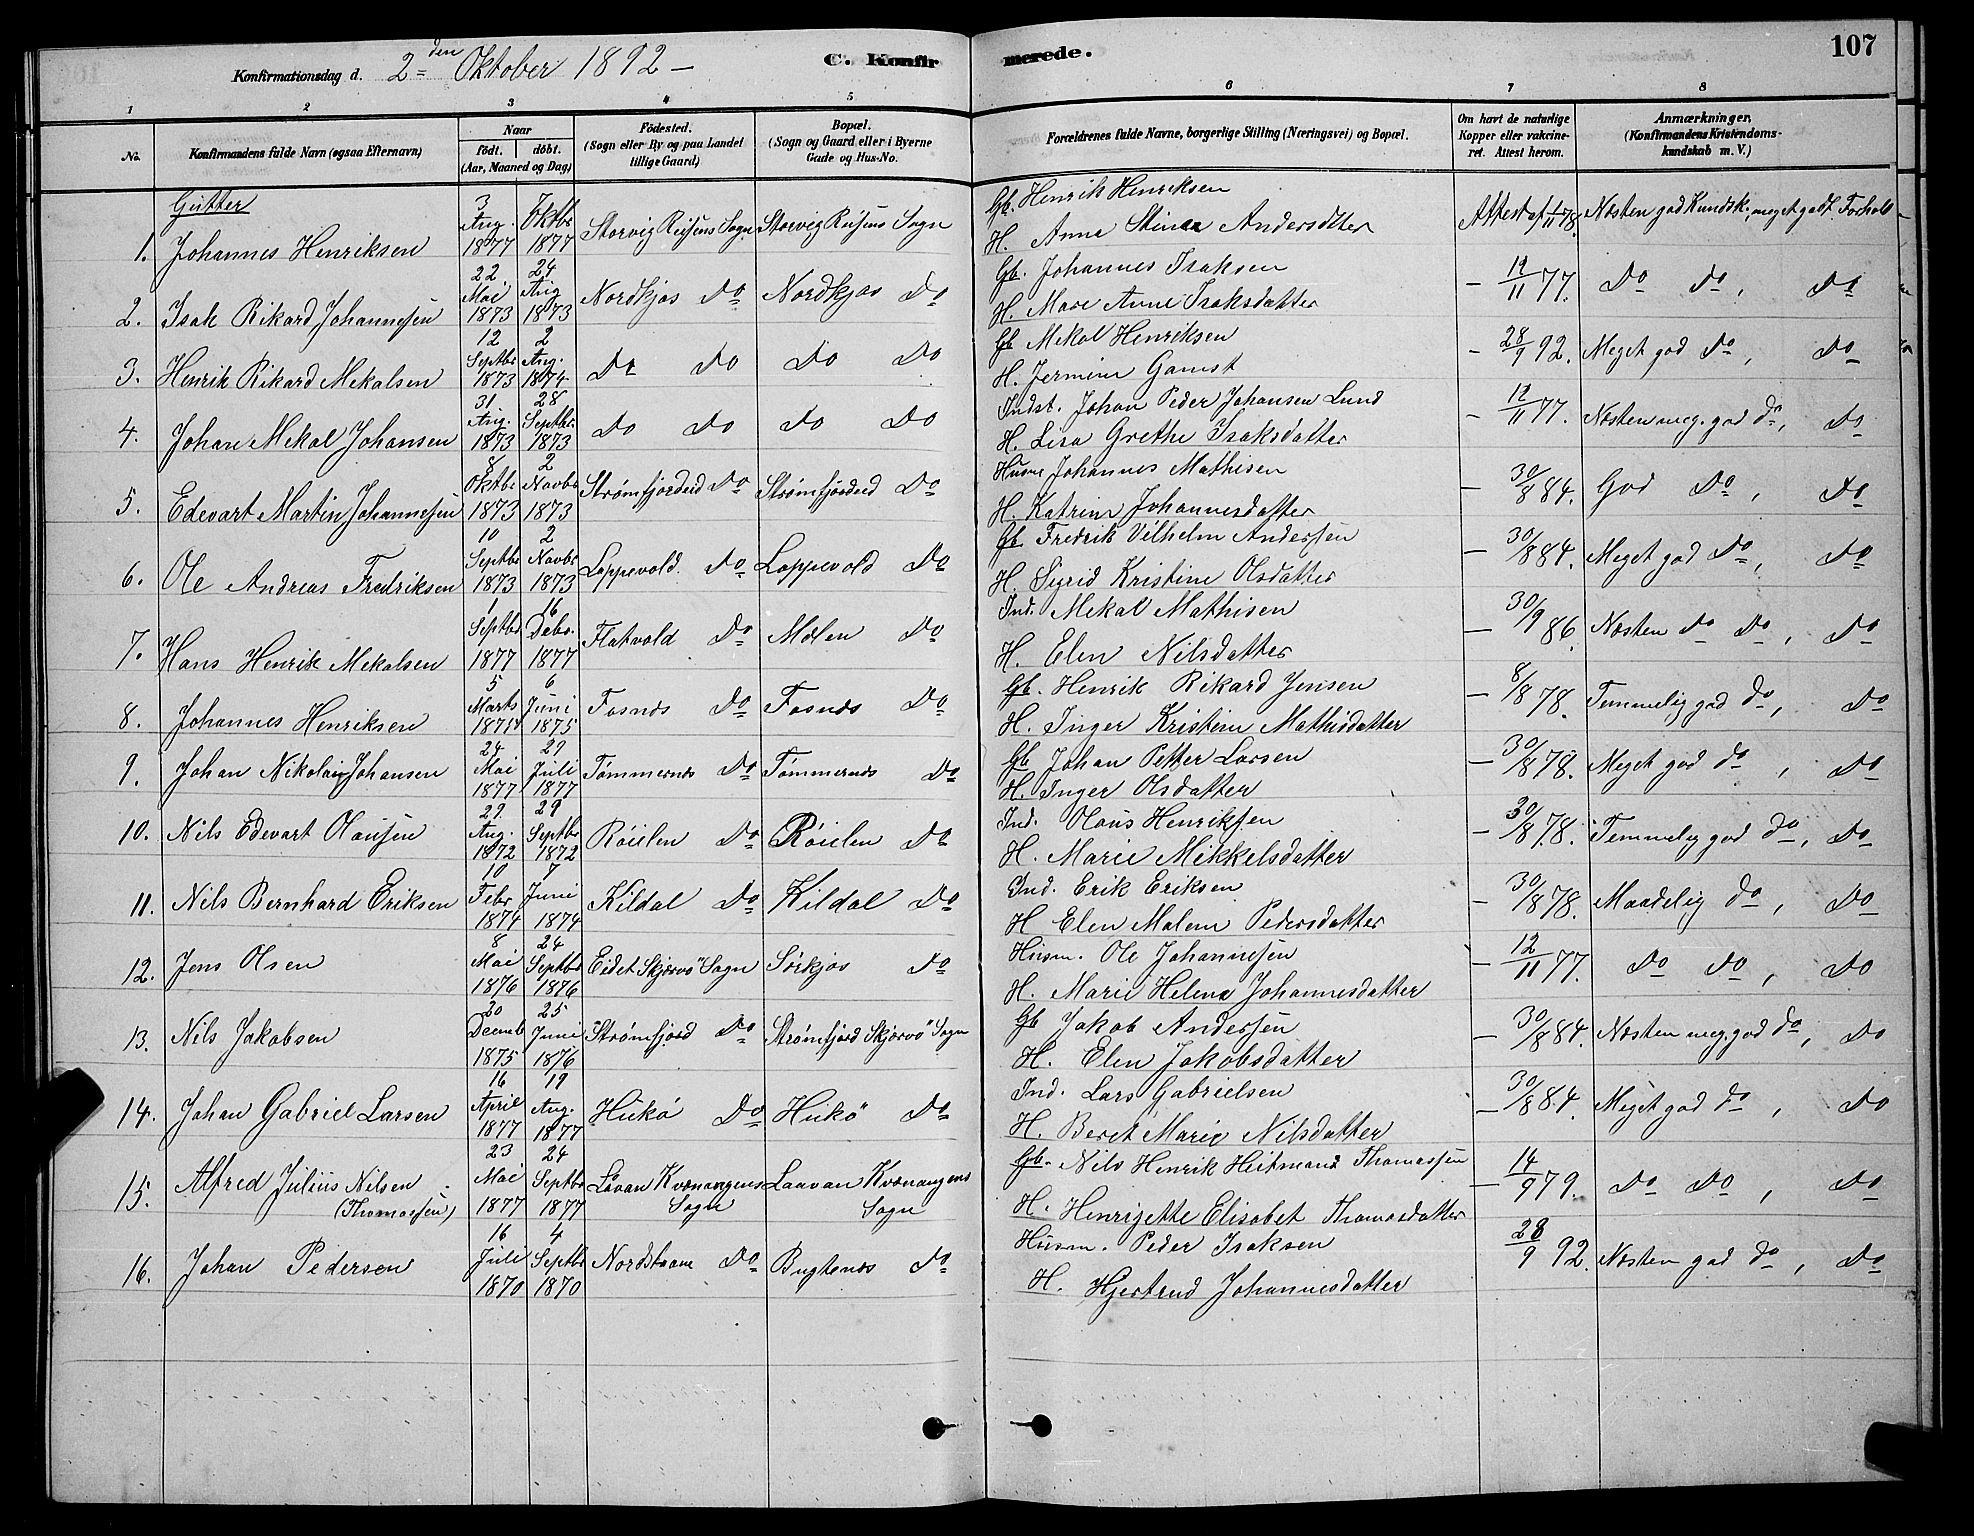 107
Konfirmationsdag d. 2den Oktober 1892 —
C. Konfirmerede.
1 2 3 4 5 6 7 8
No. Konfirmandens fulde Navn (ogsaa Efternavn) Naar født. døbt. (Aar, Maaned og Dag) Fødested. (Sogn eller By og paa Landet tillige Gaard) Bopæl. (Sogn og Gaard eller i Byerne Gade og Hus-No. Forældrenes fulde Navne, borgerlige Stilling (Næringsvei) og Bopæl. Om havt de naturlige Kopper eller vakcineret. Attest herom. Anmærkninger, (Konfirmandens Kristendomskundskab m. V.)
Gutter
1. Johannes Henriksen 3 Aug. 1877 Oktbr 1877 Storvig Reisens Sogn Storvig Reisens Sogn Gb. Henrik Henriksen
H. Anne Stina Andersdtter Attest af 1/11 78. Næsten god Kundsk., meget godt Forhold
2. Isak Rikard Johannesen 22 Mai 1873 24 Aug 1873 Nordkjos Do Nordkjos Do Gb. Johannes Isaksen
H. Mare Anne Isaksdatter — 12/11 77. Do Do, Do
3. Henrik Rikard Mekalsen 12 Septbr 1873 2 Aug. 1874 Do Do Do Do Gb Mekal Henriksen
H. Jermine Gamst — 28/9 92. Meget god Do, Do
4. Johan Mekal Johansen 31 Aug. 1873 28 Septbr. 1873 Do Do Do Do Indst. Johan Peder Johansen Lund
H. Lisa Grethe Isaksdatter — 12/11 77. Næsten meg. god Do, Do
5. Edevart Martin Johannesen 8 Oktbr 1873 2 Novbr 1873 Strømfjordeid Do Strømfjordeid Do Husm Johannes Mathisen
H. Katrine Johannesdatter — 30/8 84. God Do, Do
6. Ole Andreas Fredriksen 10 Septbr 1873 2 Novbr 1873 Loppevold. Do Loppevold Do Gb Fredrik Vilhelm Andersen
H. Sigrid Kristine Olsdatter — 30/8 84. Meget god Do, Do
7. Hans Henrik Mekalsen 1 Septbr 1877 16 Debr. 1877 Flatvold Do Molen Do Ind. Mekal Mathisen
H. Elen Nilsdatter — 30/9 86. Næsten do Do, Do
8. Johannes Henriksen 5 Marts 1875 6 Juni 1875 Fosnæs Do Fosnæs Do Gb. Henrik Rikard Jensen
H. Inger Kristine Mathisdatter — 8/8 78. Temmelig god Do, Do
9. Johan Nikolai Johansen 24 Mai 1877 29 Juli 1877 Tømmernæs Do Tømmernæs Do Gb Johan Petter Larsen
H. Inger Olsdatter — 30/8 78. Meget god do, Do
10. Nils Edevart Olausen 29 Aug. 1872 29 Septbr 1872 Røielen Do Røielen Do Ind. Olaus Henriksen
H. Marie Mikkelsdatter — 30/8 78. Temmelig god do, Do
11. Nils Bernhard Eriksen 10 Febr 1874 7 Juni 1874 Kildal Do Kildal Do Ind. Erik Eriksen
H Elen Malene Pedersdatter — 30/8 78. Maadelig do, Do
12. Jens Olsen 8 Mai 1876 24 Septbr 1876 Eidet Skjærvø Sogn Sørkjos Do Husm. Ole Johannesen
H. Marie Helene Johannesdatter — 12/11 77. Do Do, Do
13. Nils Jakobsen 20 Decemb 1875 25 Juni 1876 Strømfjord Do Strømfjord Skjærvø Sogn Gb Jakob Andersen
H. Elen Jakobsdatter — 30/8 84. Næsten meg. god do, Do
14. Johan Gabriel Larsen 16 April 1877 19 Aug. 1877 Hukø Do Hukø Do Ind. Lars Gabrielsen
H. Beret Marie Nilsdatter — 30/8 84. Meget god do, Do
15. Alfred Julius Nilsen (Thomassen) 23 Mai 1877 24 Septbr 1877 Lavan Kvænangens Sogn Laavan Kvænangens Sogn Gb. Nils Henrik Heitmand Thomassen
H. Henrijette Elisabet Thomasdatter — 14/9 79. Do Do, Do
16. Johan Pedersen 16 Juli 1870 4 Septbr 1870 Nordstraum Do Bugtenæs Do Husm. Peder Isaksen
H. Hjertrud Johannesdatter 28/9 92. Næsten god do, Do